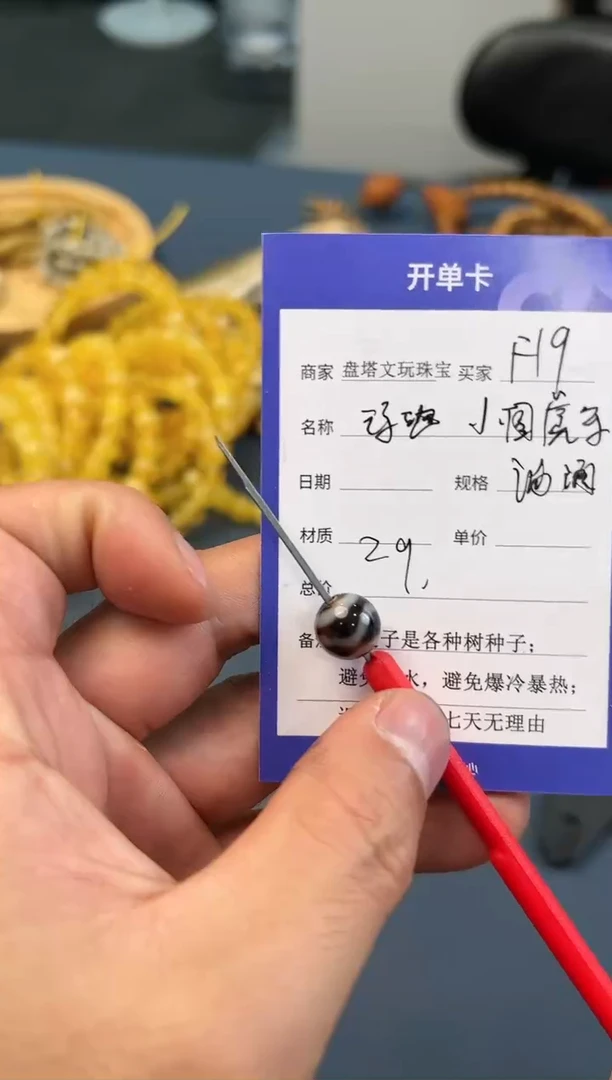 开单卡
商家 盘塔文玩珠宝 买家 F19
名称 小圆虎牙
日期 规格 油润
材质 单价
总价 29,
备 子是各种树种子；
避免 水，避免爆冷暴热；
七天无理由
心